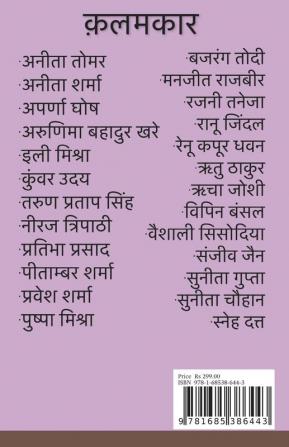 क़लमकार
·अनीता तोमर
·अनीता शर्मा
·अपर्णा घोष
·अरुणिमा बहादुर खरे
·इली मिश्रा
·कुंवर उदय
·तरुण प्रताप सिंह
·नीरज त्रिपाठी
·प्रतिभा प्रसाद
·पीताम्बर शर्मा
·प्रवेश शर्मा
·पुष्पा मिश्रा
·बजरंग तोदी
·मनजीत राजबीर
·रजनी तनेजा
·रानू जिंदल
·रेनू कपूर धवन
·ऋतु ठाकुर
·ऋचा जोशी
·विपिन बंसल
·वैशाली सिसोदिया
·संजीव जैन
·सुनीता गुप्ता
·सुनीता चौहान
·स्नेह दत्त
Price Rs 299.00
ISBN 978-1-68538-644-3
9 781685 386443